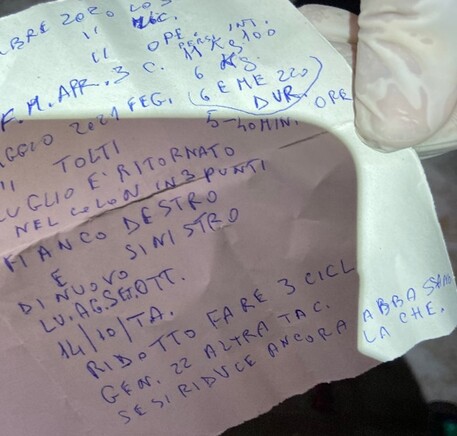 BRE 2020 COS
" " INT.
" OPE. PERS. 11 KG. 100
F. M. APR. 3 C. 6 KG.
GGIO 2021 FEG. (6 E ME 220)
DUR.
" TOLTI 5-40 MIN. ORE
LUGLIO E' RITORNATO
NEL COLON IN 3 PUNTI
FIANCO DESTRO
E SINISTRO
DI NUOVO
LU. AG. SE OTT.
14/10/TA.
RIDOTTO FARE 3 CICL
GEN. 22 ALTRA TAC.
SE SI RIDUCE ANCORA ABBASSANO
LA CHE.